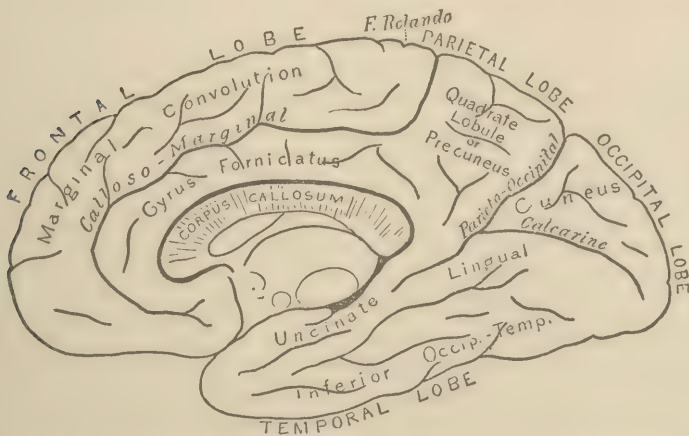 FRONTAL LOBE
F. Rolando
PARIETAL LOBE
OCCIPITAL LOBE
Marginal Convolution
Calloso-Marginal
Gyrus Fornicatus
CORPUS CALLOSUM
Quadrate
Lobule
or
Precuneus
Parieto-Occipital
Cuneus
Calcarine
Lingual
Uncinate
Inferior Occip.-Temp.
TEMPORAL LOBE